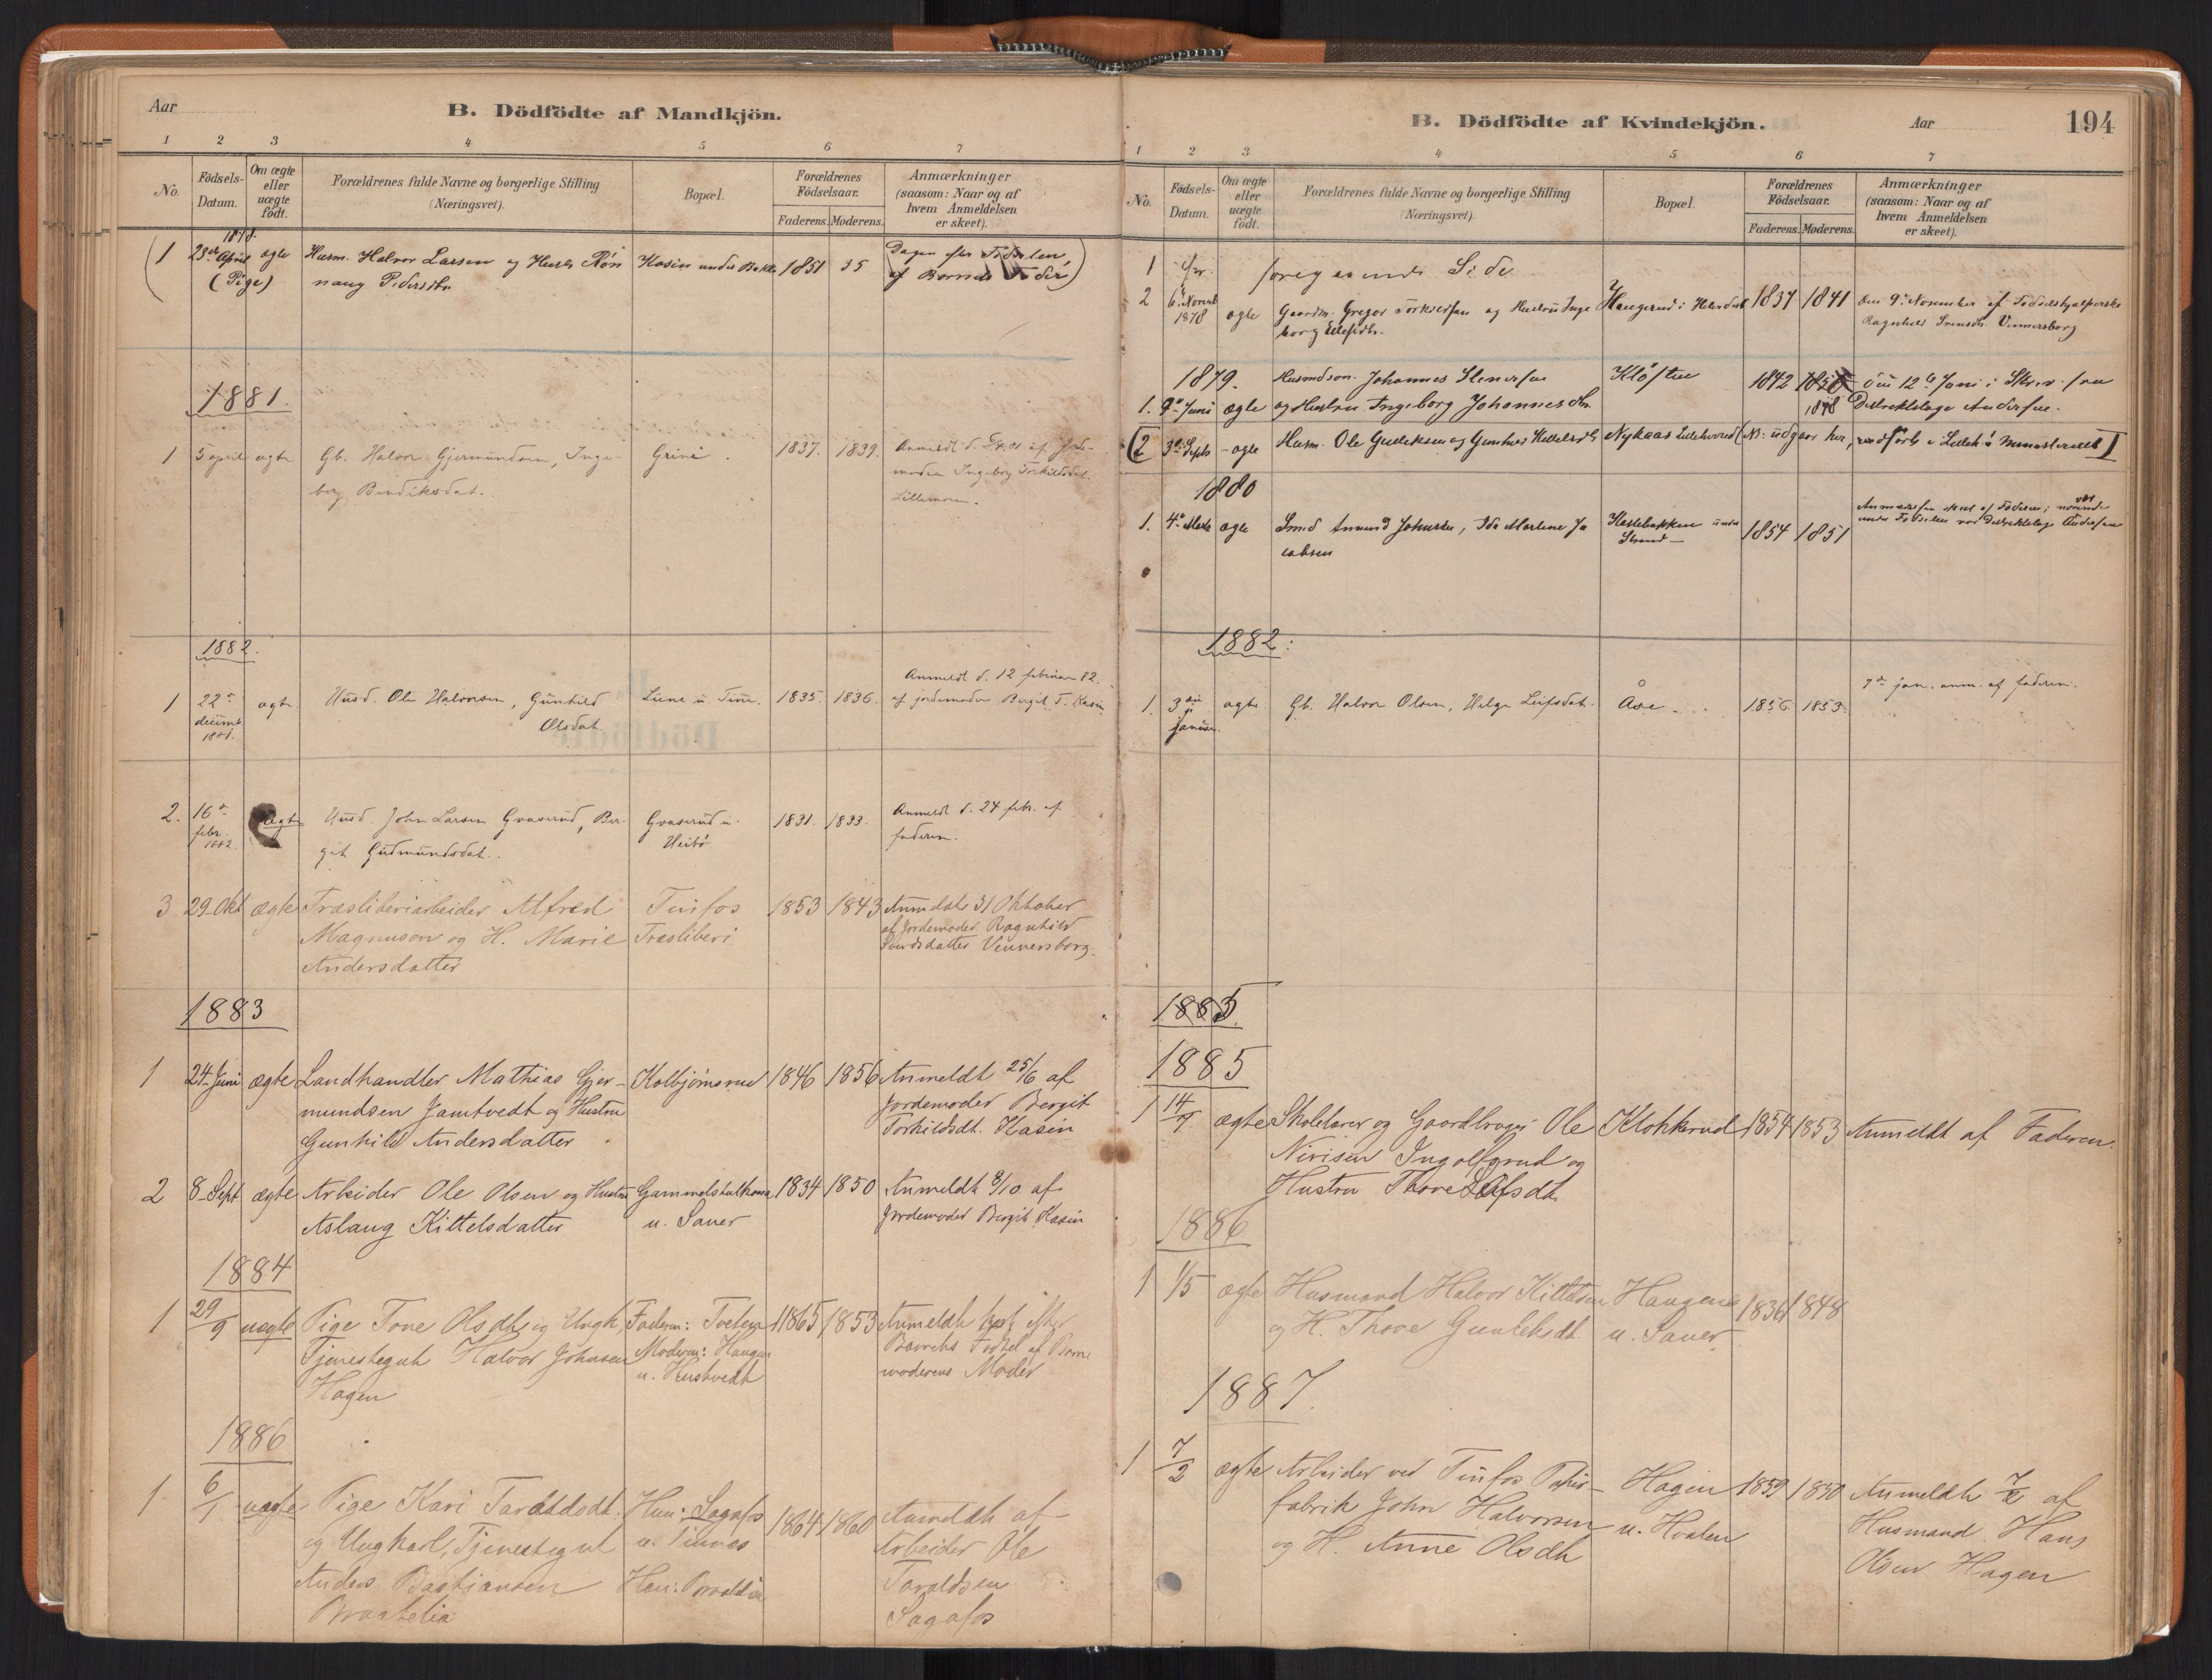 Aar
B. Dödfödte af Mandkjön.
1 2 3 4 5 6 7
No.
Födsels-
Datum.
Om ægte
eller
uægte
födt.
Forældrenes fulde Navne og borgerlige Stilling
(Næringsvei).
Bopæl.
Forældrenes
Födselsaar.
Faderens. Moderens.
Anmærkninger
(saasom: Naar og af
hvem Anmeldelsen
er skeet).
1878.
(1 23de April ægte Husm. Halvor Larsen og Hustr Røn Hasin under Bakke 1851 35 Dagen efter Fødselen,
(Pige) naug Pedersdtr. af Barnets Fader)
1881.
1 5 april ægte Gb. Halvor Gjermundsen, Inge- Grini. 1837. 1839. Anmeldt d. af Jorde-
borg Bendiksdat. moder Ingeborg Torkildsdat.
Lillemoen.
1882.
Anmeldt d. 12 februar 82.
1 22de ægte. Husd. Ole Halvorsen, Gunhild Lune u Tinne. 1835. 1836. af jordemoder Bergit T. Hasin.
decemb. Olsdat.
1881.
2. 16de ægte Husd. John Larsen Graserud, Ber- Graserud u. 1831. 1833. Anmeldt d. 24 febr. af
febr. git Gudmundsdat. Heibö faderen.
1882.
3 29 Okt ægte Træsliberiarbeider Alfred Tinfos 1853 1843 Anmeldt 31 Oktober
Magnuson og H. Marie Træsliberi af Jordemoder Ragnhild
Andersdatter Svendsdatter Vennersborg.
1883
1 24 Juni ægte Landhandler Mathias Gjer- Kolbjørnsrud 1846 1856 Anmeldt 25/6 af
mundsen Jamtvedt og Hustru Jordemoder Bergit
Gunhild Andersdatter Torkildsdt. Hasin
2 8 Sept ægte Arbeider Ole Olsen og Hustru Gammelstulhaug 1834 1850 Anmeldt 8/10 af
Aslaug Kittelsdatter u. Sauer Jordemoder Bergit Hasin
1884
1 29/9 uægte Pige Tone Olsdt og Ungk. Faderen: Tveten 1865 1853 Anmeldt efter
Tjenestegut Halvor Johnsen Moderen: Haugen Barnets Fødsel af Barne
Hagen u. Hustvedt moderens Moder
1886
1 6/1 uægte Pige Kari Taraldsdt. Hun: Sagafos 1864 1860 Anmeldt af
og Ungkarl, Tjenestegut u. Tinnes Arbeider Ole
Anders Bastiansen Han: Taraldsen
Braatelia Sagafos
B. Dödfödte af Kvindekjön.
Aar
194
1 2 3 4 5 6 7
No.
Födsels-
Datum.
Om ægte
eller
uægte
födt.
Forældrenes fulde Navne og borgerlige Stilling
(Næringsvei).
Bopæl.
Forældrenes
Födselsaar.
Faderens. Moderens.
Anmærkninger
(saasom: Naar og af
hvem Anmeldelsen
er skeet).
1 cfr. foregaaende Side
2 6te Novemb ægte Gaardm. Gregar Torkildsen og Hustru Inge Haugerud i Heierdal 1837 1841 den 9de November af Fødselshjelperske
1878 borg Eilefsdtr. Ragnhild Svensdtr. Vennersborg
1879. Husmdson. Johannes Stenersen Kløften 1842 1850 den 12te Juni i Skriv. fra
1. 9de Juni ægte og Hustru Ingeborg Johannesdtr. 1848 Distriktslæge Andersen.
(2 3de Septb - ægte Husm. Ole Gulliksen og Gunhild Kittelsdtr Nykaas Lilleherred (NB: udgaar her, indført i Lilleh's Ministerialb I
1880
1. 4de Marts ægte Smed Amund Johnsen, Ida Marlene Ja Kastebakken under 1854 1851 Anmeldelsen skeet af Faderen; nærværende
cobsen Strand - under Fødselen var Distriktslæge Andersen
1882:
1. 3die ægte Gb. Halvor Olsen, Helge Leifsdat. Åse 1856 1853. 7de jan. anm. af faderen.
januar.
1883.
1885
1 14/9 ægte Skolelærer og Gaardbruger Ole Klokkerud 1854 1853 Anmeldt af Faderen.
Nirisen Ingolfsrud og
Hustru Thore Olafsdt.
1886
1 1/5 ægte Husmand Halvor Kittelsen Haugene 1836 1848
og H. Thore Gunleksdt. u. Sauer
1887.
1 7/2 ægte Arbeider ved Tinfos Papir- Hagen 1859 1850 Anmeldt 7/2 af
fabrik John Halvorsen u. Hvalen Husmand Hans
og H. Anne Olsdt Olsen Hagen